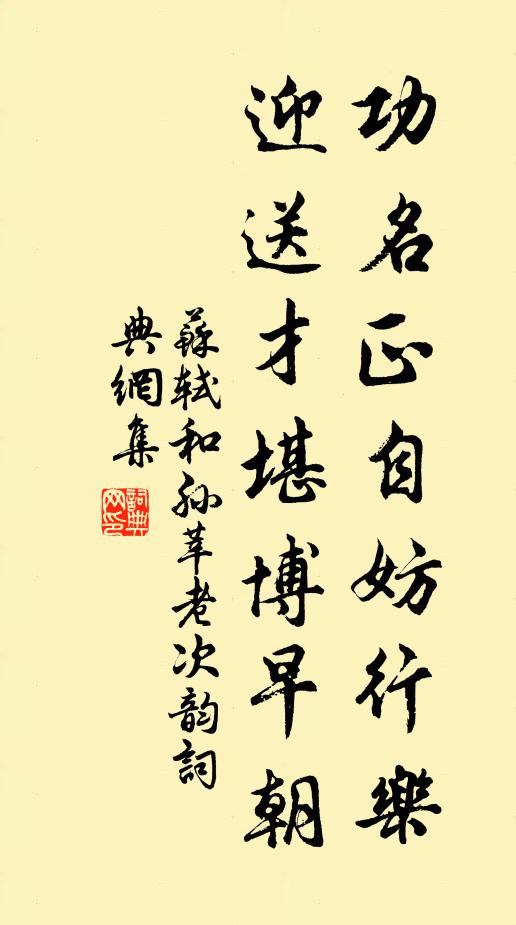 功名正自妨行樂
迎送才堪博早朝
蘇軾和孫莘老次韵詞
典網集
詞典網印